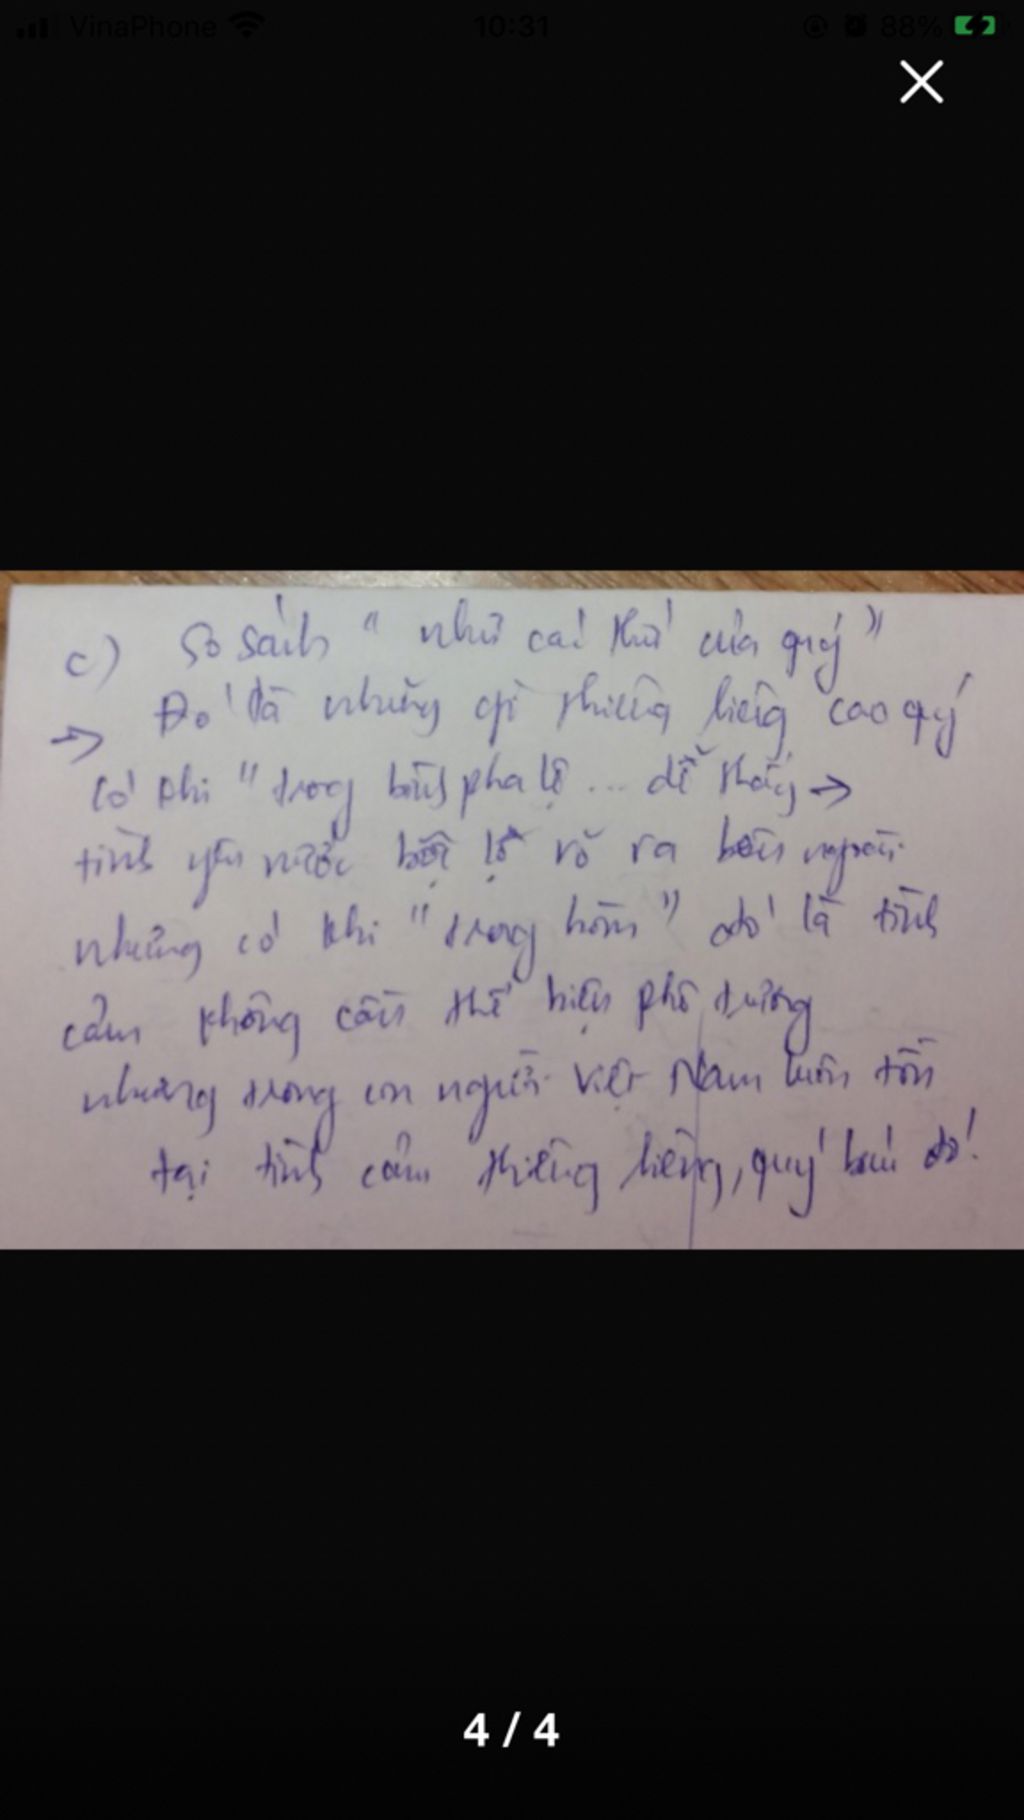 VinaPhone 10:31 88%
c) So sánh " như các thứ của quý "
→ Đó là những gì thiêng liêng cao quý
Có khi " trong bình pha lê ... dễ thấy →
tình yêu nước bộc lộ rõ ra bên ngoài.
nhưng có khi " trong hòm " đó là tình
cảm không cần thể hiện phô trương
nhưng trong con người Việt Nam luôn tồn
tại tình cảm thiêng liêng, quý báu đó!
4 / 4